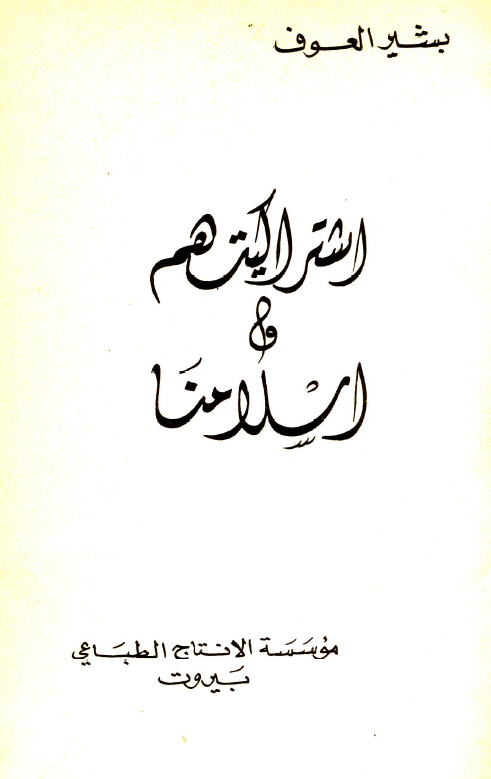 بشير العوف
اشتراكيتهم
و
اسلامنا
مؤسَسَة الانتاج الطبَاعي
بَيروت